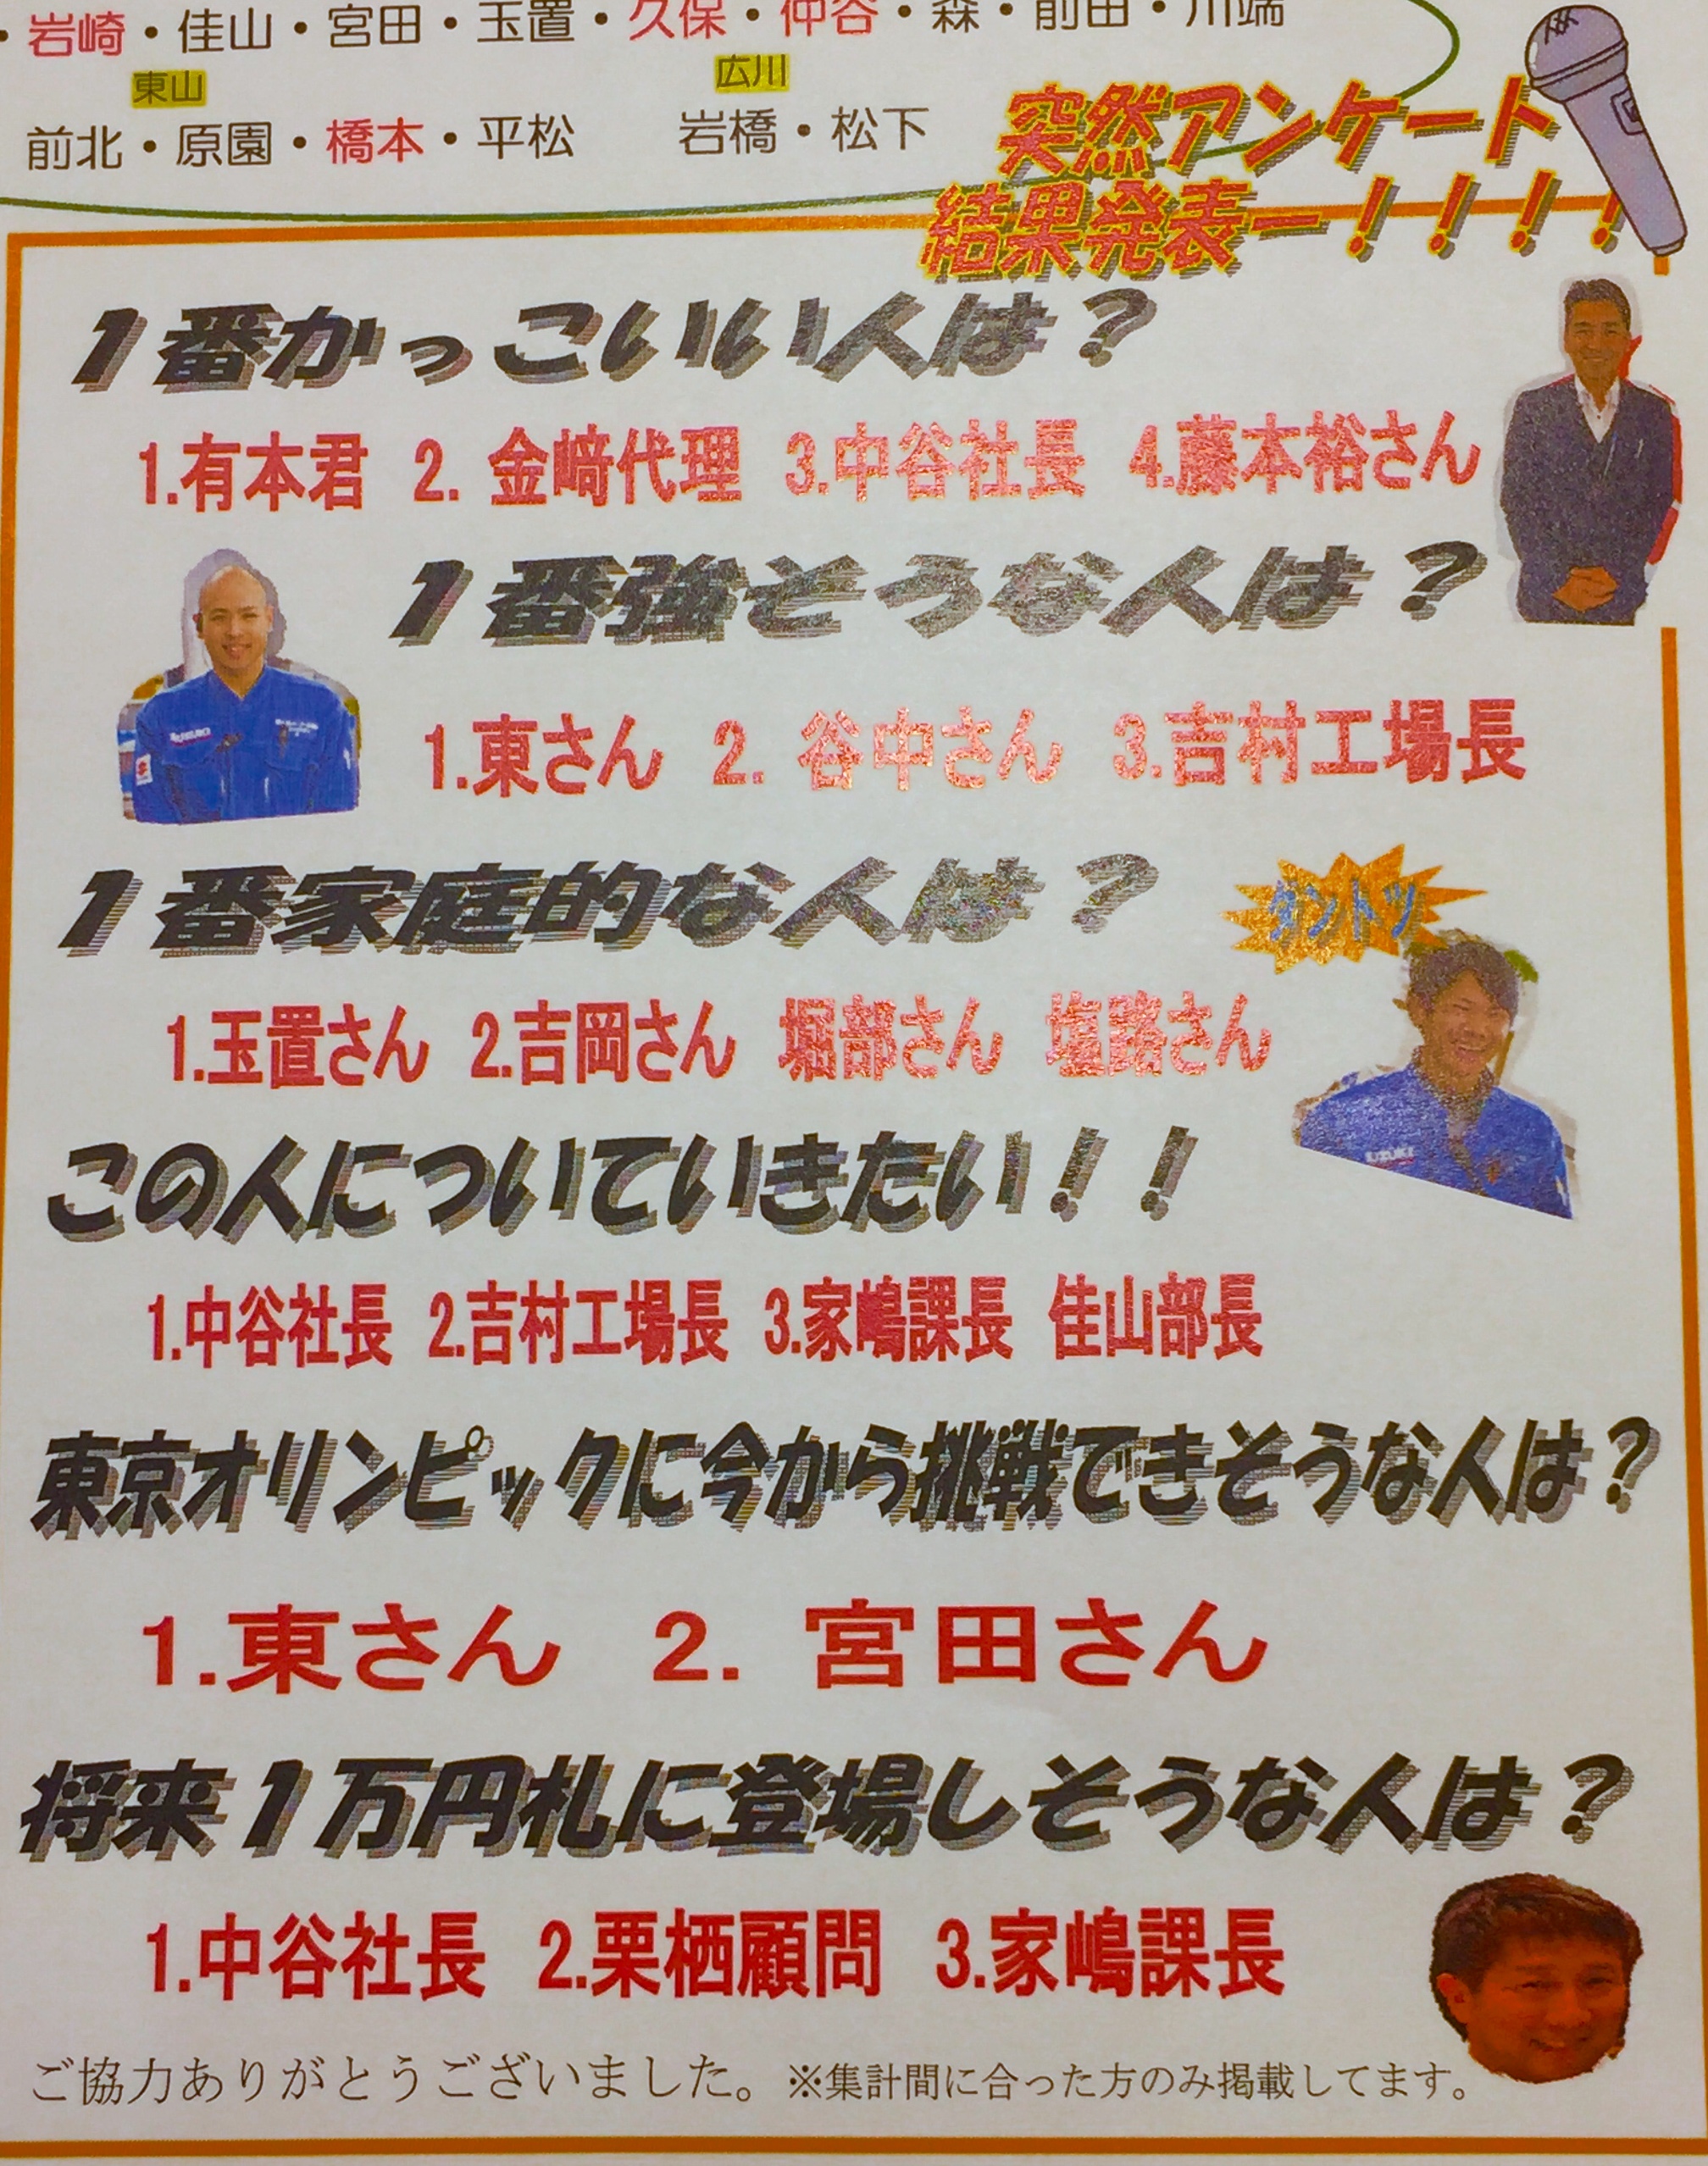 ・岩崎・佳山・宮田・玉置・久保・仲谷・森・前田・川端
東山 広川
前北・原園・橋本・平松 岩橋・松下
突然アンケート
結果発表ー！！！！
1番かっこいい人は？
1.有本君 2. 金﨑代理 3.中谷社長 4.藤本裕さん
1番強そうな人は？
SUZUKI
1.東さん 2. 谷中さん 3.吉村工場長
1番家庭的な人は？
ダントツ
1.玉置さん 2.吉岡さん 堀部さん 塩路さん
UZUKI
この人についていきたい！！
1.中谷社長 2.吉村工場長 3.家嶋課長 佳山部長
東京オリンピックに今から挑戦できそうな人は？
1.東さん 2. 宮田さん
将来1万円札に登場しそうな人は？
1.中谷社長 2.栗栖顧問 3.家嶋課長
ご協力ありがとうございました。※集計間に合った方のみ掲載してます。